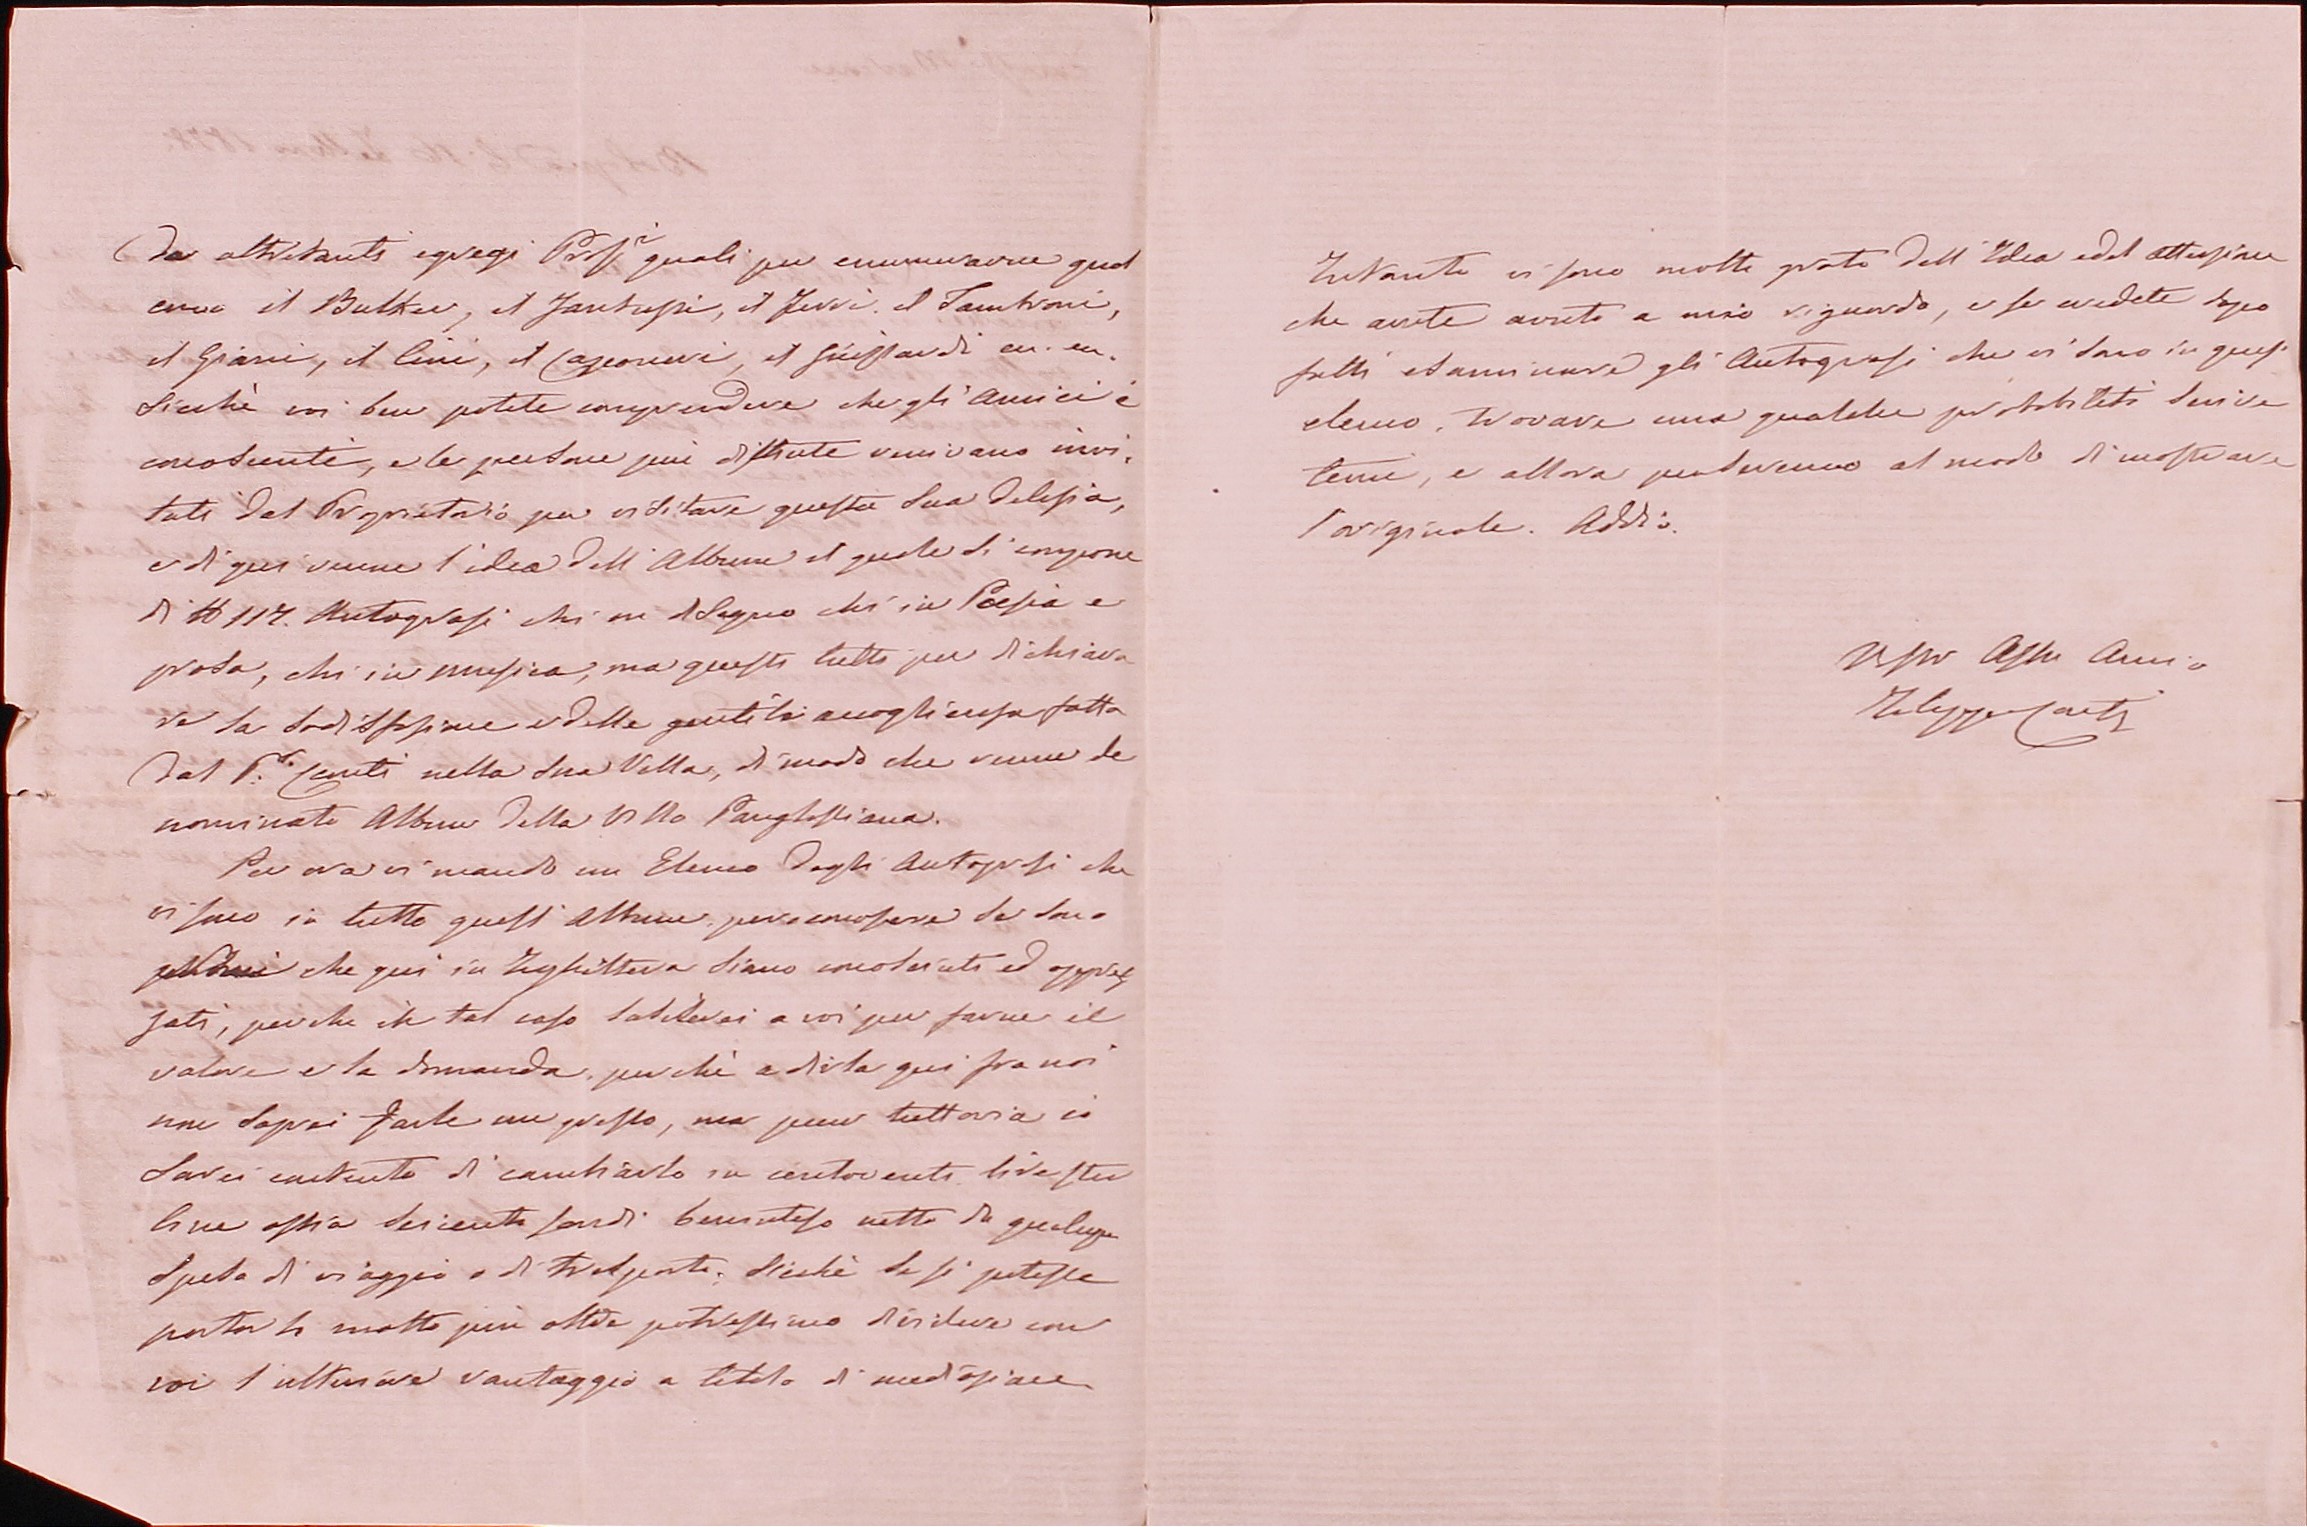 da altretanti egregi Prof.i quali per enumerarne qual
cuno il Butker, il Jantussi, il Jussi. il Tambroni,
il Giani, il Cini, il Capponeri, il Guissardi ec. ec.
Sicchè voi ben potete comprendere che gli Amici é
conoscenti, e le persone più distinte venivano invi.
tati dal Proprietario per visitare questa sua delizia,
e di qui venne l'idea dell'Album il quale si compone
di N 117. Autografi chi in disegno chi in Poesia e
prosa, chi in musica, ma questi tutti per dichiara
re la sodisfazione e della gentile accoglienza fatta
dal P.e Conti nella sua Villa, di modo che venne de
nominato Album della Villa Panglossiana.
Per ora vi mando un Elenco degli Autografi che
vi sono in tutto quest'Album. per conoscere se sono
che qui in Inghilterra siano conosciuti ed apprez
zati, perche in tal caso lascierei a voi per farne il
valore e la domanda. perchè a dirla qui fra noi
non saprei farle un prezzo, ma pure tuttavia io
sarei contento di cambiarlo in centoventi lire ster
line ossia seicento scudi beninteso netto da qualunque
spesa di viaggio o di trasporto. Sicchè se si potesse
portarli molto più oltre potressimo dividere con
voi l'ulteriore vantaggio a titolo di mediazione
Intanto vi sono molto grato dell'Idea e del attenzione
che avete avuto a mio riguardo, e se credete dopo
fatti esaminare gli Autografi che vi sono in quest'
elenco. trovare una qualche probabilità scrive
temi, e allora penseremo al modo di mostrare
l'originale. Addio.
Vostro Affmo Amico
Filippo Conti